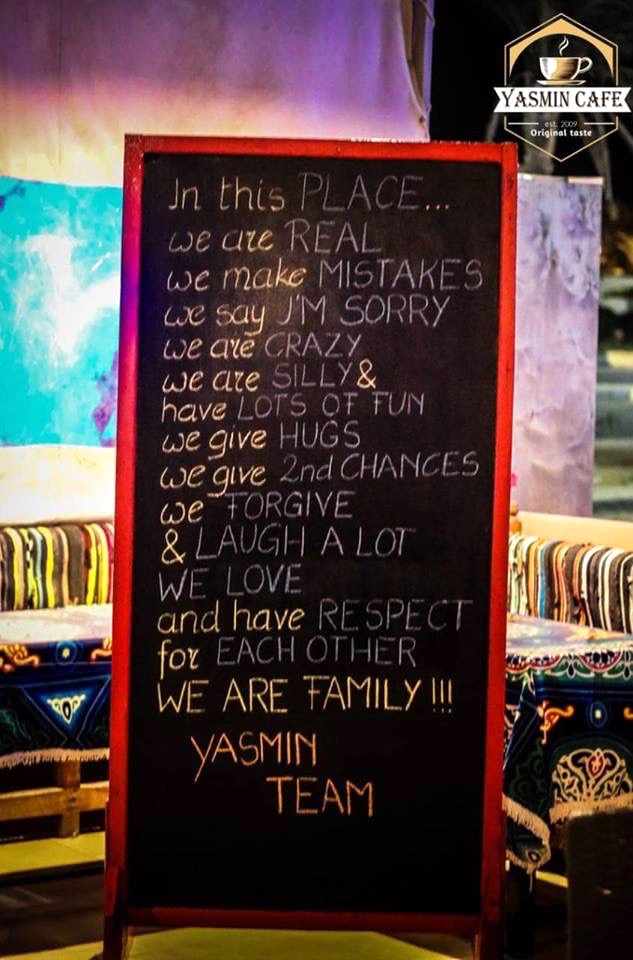 YASMIN CAFE
est. 2009
Original taste
In this PLACE...
we are REAL
we make MISTAKES
we say I'M SORRY
we are CRAZY
we are SILLY &
have LOTS OF FUN
we give HUGS
we give 2nd CHANCES
we FORGIVE
& LAUGH A LOT
WE LOVE
and have RESPECT
for EACH OTHER
WE ARE FAMILY !!!
YASMIN
TEAM